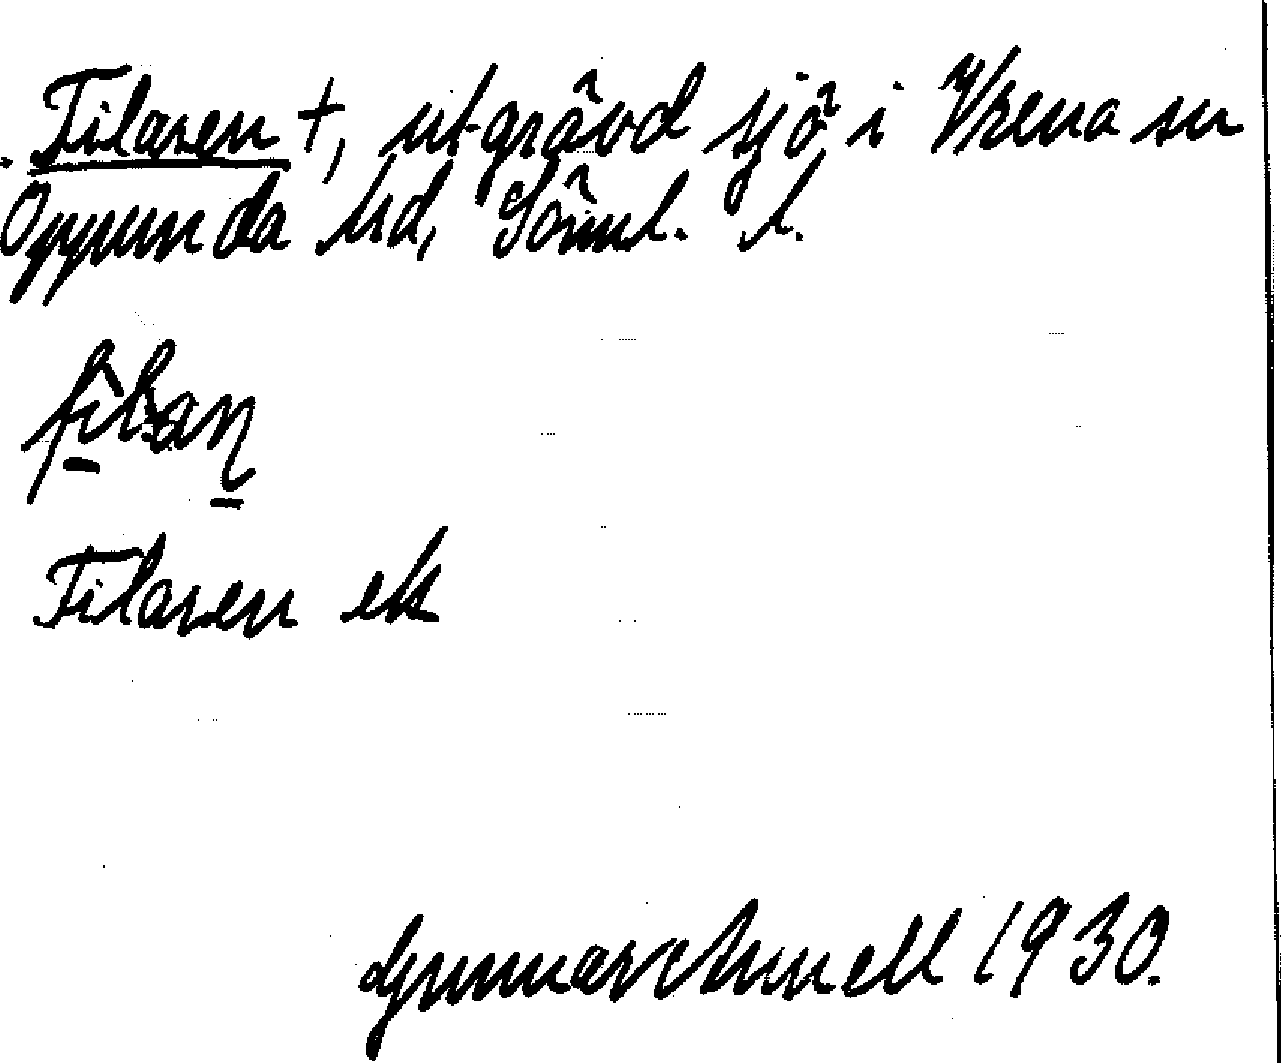 Filaren †, utgrävd sjö i Vrena sn
Oppunda hd, Söml. l.
Filaren ek
Gunnar Amnell 1930.